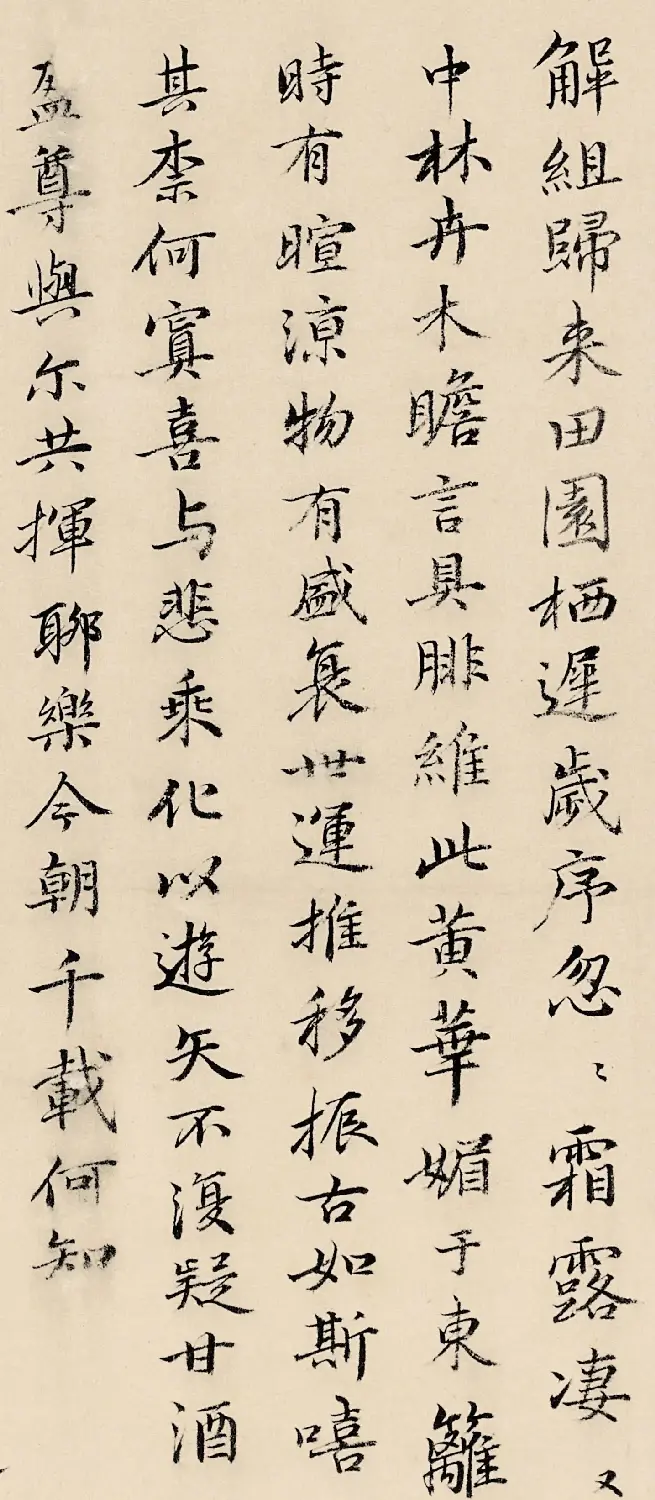 解組歸来田園栖遲歲序忽〻霜露凄又
中林卉木瞻言具腓維此黄華媚于東籬
時有暄涼物有盛衰世運推移振古如斯嘻
其柰何寘喜与悲乘化以遊矢不復疑甘酒
盈尊與尔共揮聊樂今朝千載何知